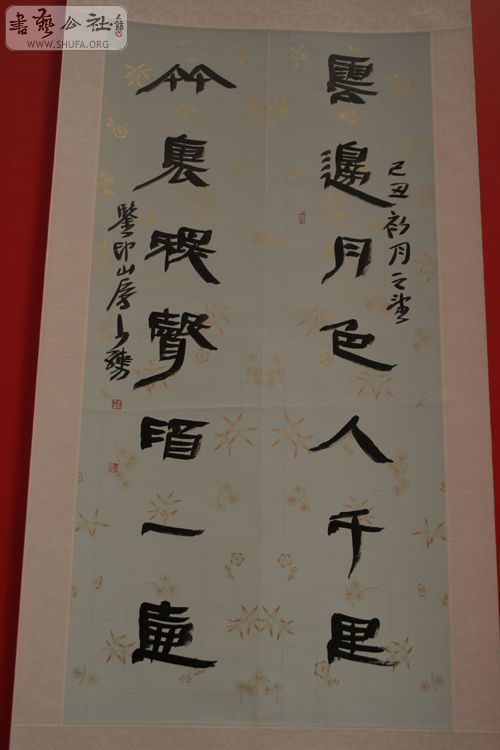 書藝公社
WWW.SHUFA.ORG
雲邊月色人千里
己丑初月之望
竹裏聲酒一壺
鑒印山房少